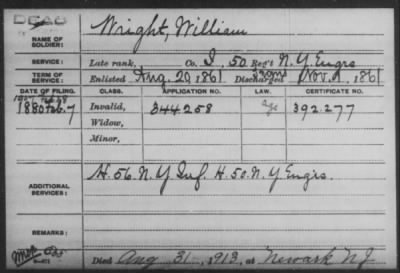 DEAD
NAME OF SOLDIER: Wright, William
SERVICE: Late rank, Co. I, 50 Reg't N.Y. Engrs
TERM OF SERVICE: Enlisted Aug. 20, 1861 Discharged Nov. 9, 1861
DATE OF FILING. CLASS. APPLICATION NO. LAW. CERTIFICATE NO.
1880 Feb. 7 Invalid, 344.258 392.277
Widow,
Minor,
ADDITIONAL SERVICES: H. 56. N.Y. Inf. H. 50. N.Y Engrs.
REMARKS:
Died Aug 31, 1913, at Newark N.J.